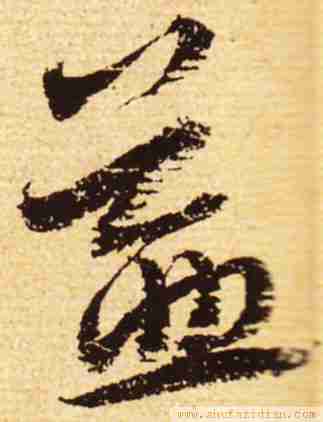 盖
www.shufazidian.com